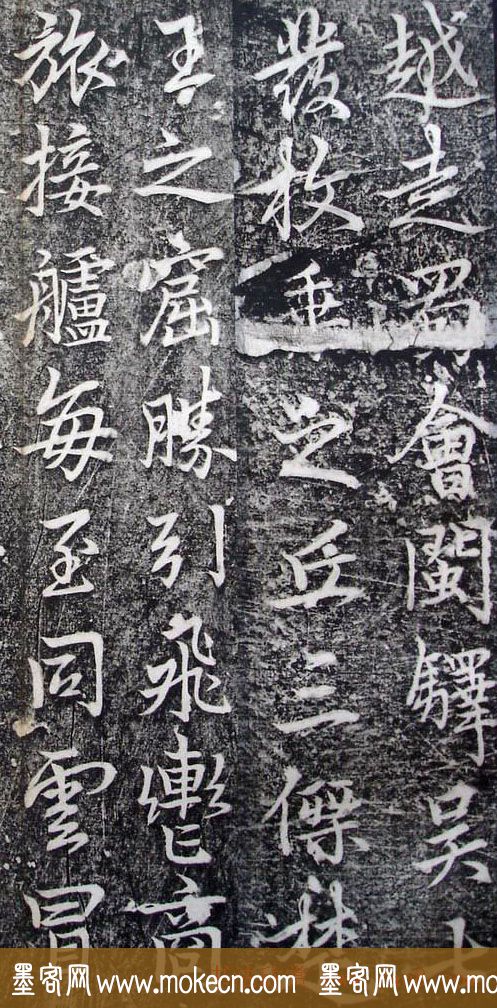 越走蜀會閩驛吴
發枚乘之丘三傑楚
王之窟勝引飛轡商
旅接艫每至同雲冒
墨客网 www.mokecn.com 墨客网 www.mokecn.com